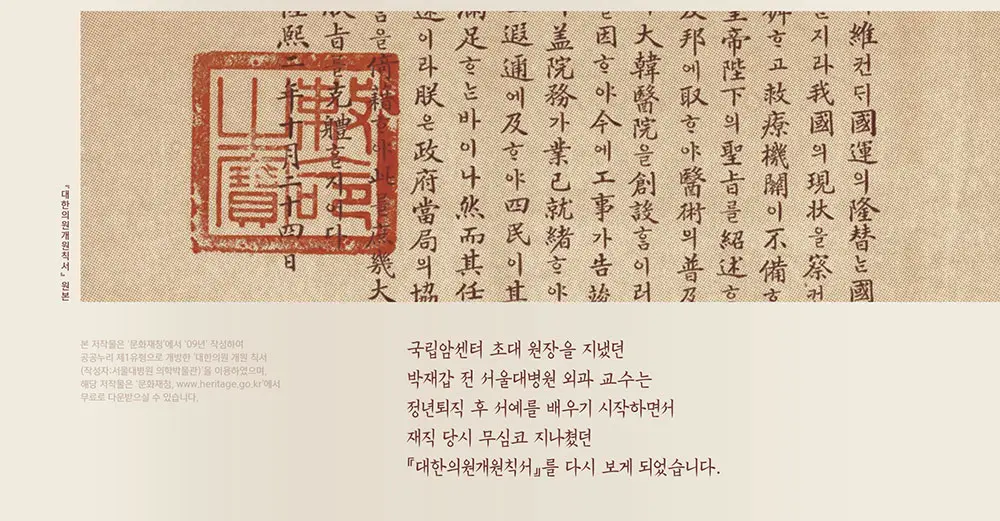 維컨디國運의隆替ᄂᆞᆫ國
지라我國의現状을察컨
ᄒᆞ고救療機關이不備ᄒᆞ
皇帝陛下의聖旨를紹述ᄒᆞ
友邦에取ᄒᆞ야醫術의普及
大韓醫院을創設ᄒᆞᆷ이러
을因ᄒᆞ야今에工事가告竣
蓋院務가業已就緖ᄒᆞ야
遐邇에及ᄒᆞ야四民이其
滿足ᄒᆞᄂᆞᆫ바이나然而其任
이라朕은政府當局의協
을倚藉ᄒᆞ야此를庶幾大
旨를克體ᄒᆞᆯ지어다
隆熙二年十月二十四日
勅命之寶
『대한의원개원칙서』 원본
본 저작물은 '문화재청'에서 '09년' 작성하여
공공누리 제1유형으로 개방한 '대한의원 개원 칙서
(작성자:서울대병원 의학박물관)'을 이용하였으며,
해당 저작물은 '문화재청, www.heritage.go.kr'에서
무료로 다운받으실 수 있습니다.
국립암센터 초대 원장을 지냈던
박재갑 전 서울대병원 외과 교수는
정년퇴직 후 서예를 배우기 시작하면서
재직 당시 무심코 지나쳤던
『대한의원개원칙서』를 다시 보게 되었습니다.